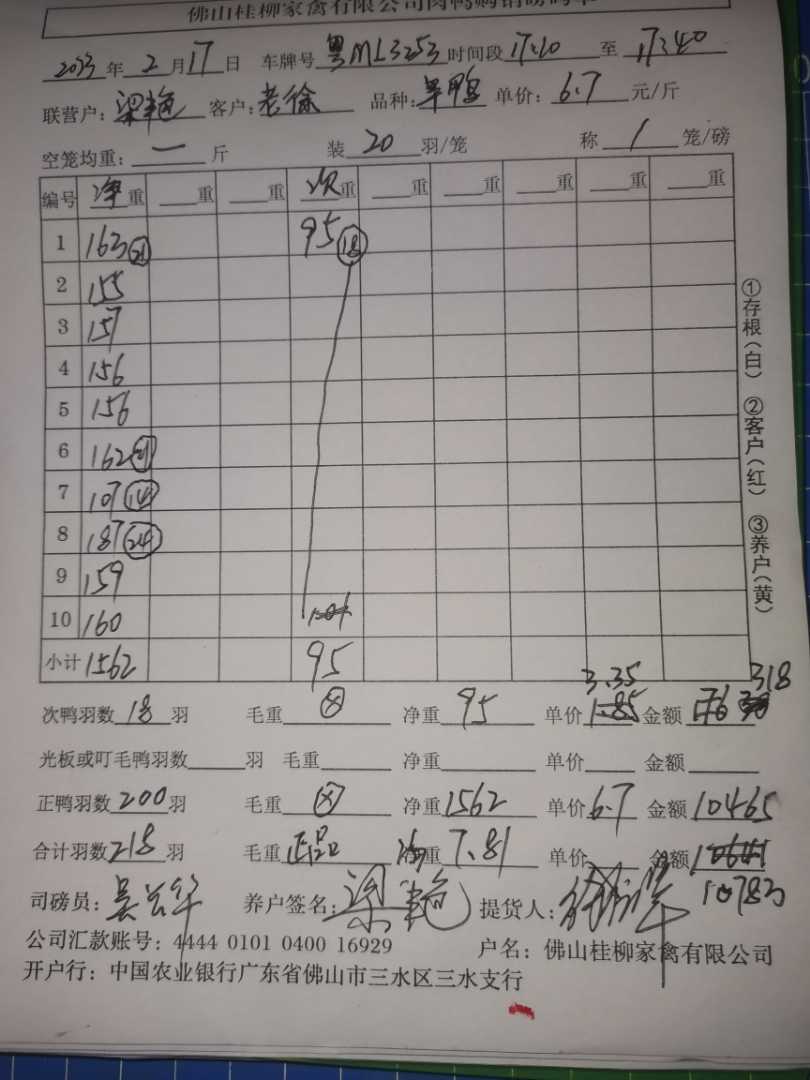 佛山桂柳家禽有限公司肉鸭购销磅码单
2023年2月17日 车牌号 粤ML3253 时间段 17:20 至 17:40
联营户：梁艳 客户：老徐 品种：旱鸭 单价：6.7 元/斤
空笼均重：一 斤 装 20 羽/笼 称 1 笼/磅
编号 净重 重 重 次重 重 重 重 重 重
1 163 (21) 95 (18)
2 155
3 157
4 156
5 156
6 162 (21)
7 107 (14)
8 187 (24)
9 159
10 160
小计 1562 95
3.35 318
次鸭羽数 18 羽 毛重 ⊗ 净重 95 单价 1.85 金额 176
光板或叮毛鸭羽数 羽 毛重 净重 单价 金额
正鸭羽数 200 羽 毛重 ⊗ 净重 1562 单价 6.7 金额 10465
合计羽数 218 羽 毛重 正品 净重 7.81 单价 金额 10641
10783
司磅员： 养户签名：梁艳 提货人：
公司汇款账号：4444 0101 0400 16929 户名：佛山桂柳家禽有限公司
开户行：中国农业银行广东省佛山市三水区三水支行
①存根（白） ②客户（红） ③养户（黄）